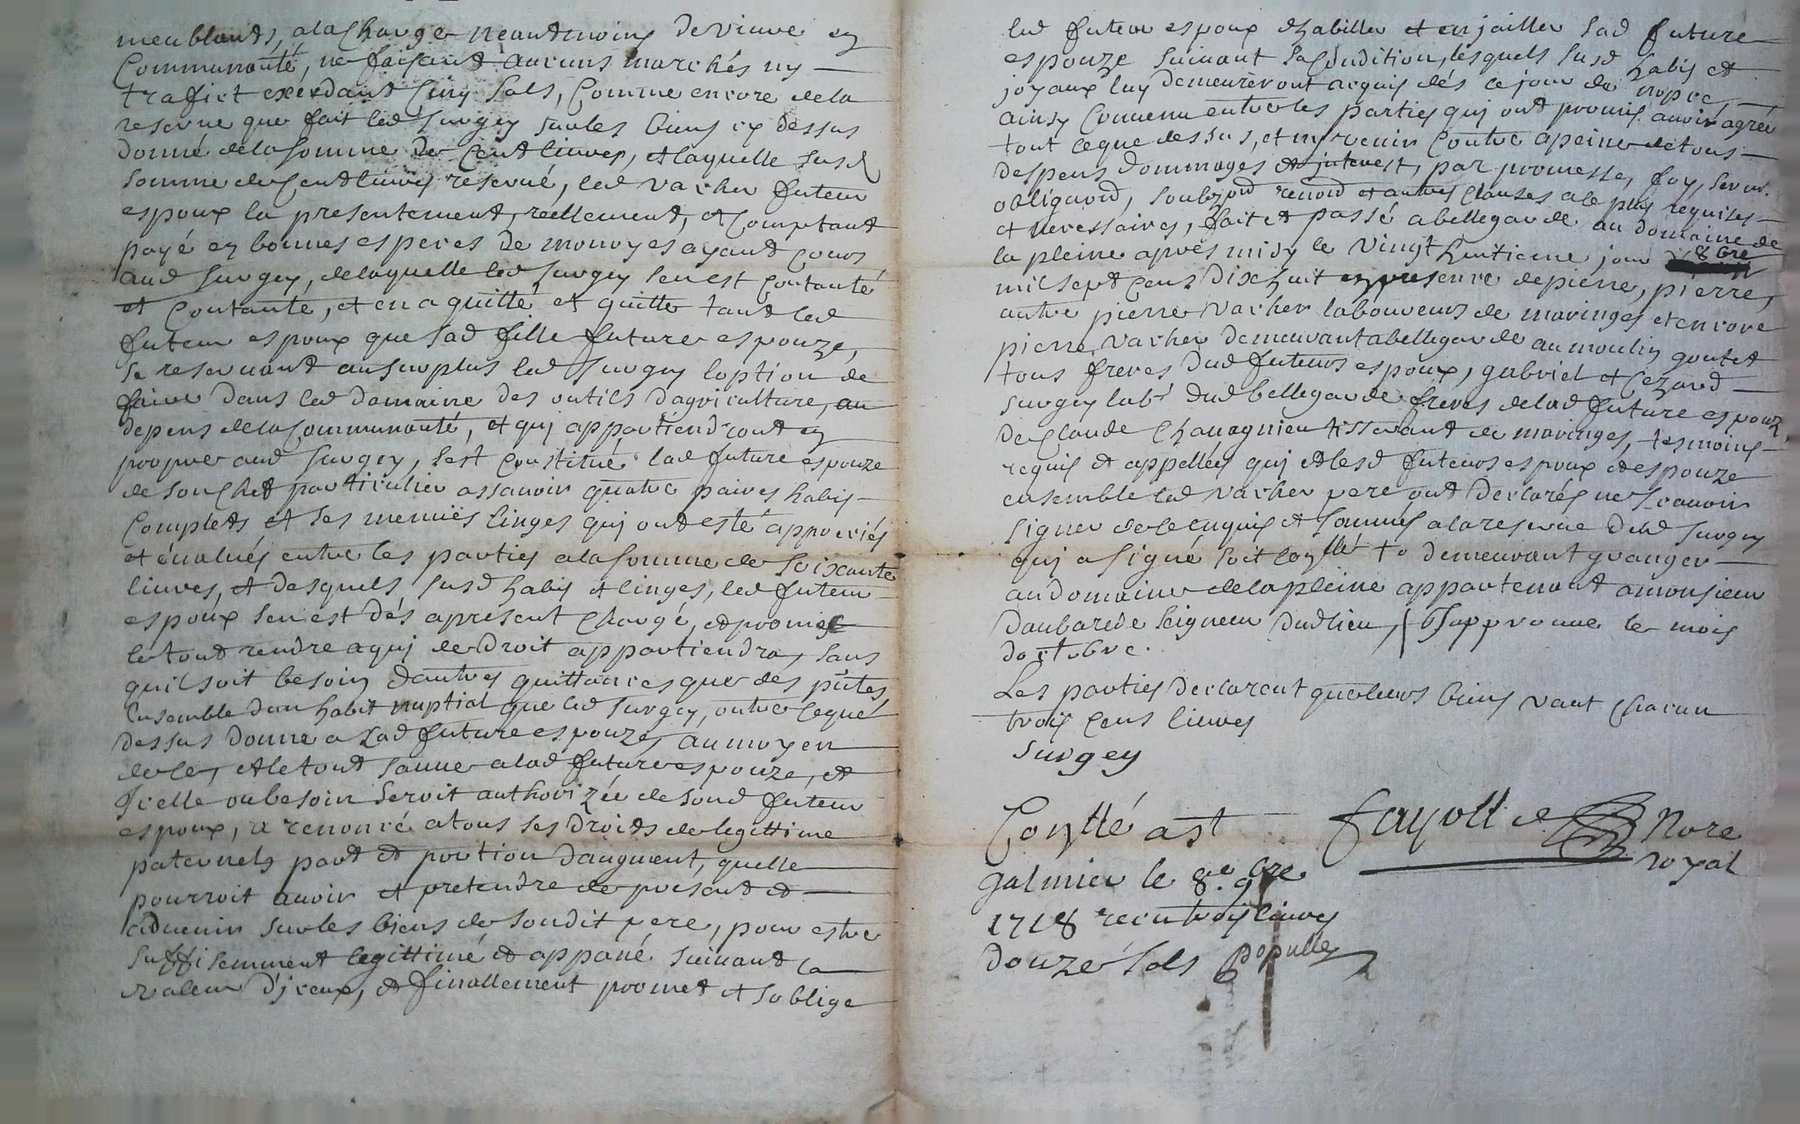 meublants, a la charge neantmoins de vivre en
Communauté, ne faisant aucuns marchés ny
traffict exedant Cinq sols, Comme encore de la
reserve que fait led surgey sur les biens cy dessus
donné de la somme de Cent livres, et laquelle susd
somme de Cent livres reservé, led vacher futeur
espoux la presentement, réellement, et Comptant
payé en bonnes especes de monoyes ayant Cours
aud surgey, de laquelle led surgey sen est Contanté
et Contante, et en a quitté et quitte tant led
futeur espoux que lad fille future espouze,
se reservant au surplus led surgey loption de
faire dans led domaine des outils dagriculture, au
depens de la Communauté, et qui appartiendront en
propre aud surgey, sest Constitué lad future espouze
de son Chet particulier assavoir quatre paires habis
Complets et ses menuës linges qui ont esté appreciés
et évalués entre les parties a la somme de soixante
livres, et desquels susd habis et linges, led futeur
espoux sen est dés apresent chargé, et promis
le tout rendre a qui de droit appartiendra, sans
quil soit besoin dautres quittances que des pntes
Ensemble dun habit nuptial que led surgey, outre Ceque
dessus donne a lad future espouze, au moyen
de Ce, et le tout sauve a lad future espouze, et
Icelle ou besoin seroit authorizée de sond futeur
espoux, a renoncé a tous ses droits de legittime
paternels part et portion daugment, quelle
pourroit avoir et pretendre de present et
advenir sur les biens de sondit pere, pour estre
suffisemment legittimé et appané suivant la
valeur d'iceux, et finallement promet et soblige
led futeur espoux dhabiller et enjailler sad future
espouze suivant sa Condition, lesquels susd habis et
joyaux luy demeureront acquis dés ce jour de nopces,
ainsy Convenu entre les parties qui ont promis avoir agréé
tout ceque dessus, et ny venir Contre a peine de tous
despens dommages et interest, par promesse, foy, serm.
obligaond, soubzond renond et autres Clauses a le plus requises
et necessaires, fait et passé a bellegarde au domaine de
la pleine aprés midy le vingt huitieme jour 8bre
mil sept Cens dix huit en presence de pierre, pierre,
autre pierre vacher laboureurs de maringes et encore
pierre vacher demeurant a bellegarde au moulin goutet
tous freres dud futeurs espoux, gabriel et Cezard
surgey labr dud bellegarde freres de lad future espouze
de Claude Chavagnieu tisserant de maringes, tesmoins
requis et appelles qui et lesd futeurs espoux et espouze
ensemble led vacher pere ont declarés ne scavoir
signer de ce enquis et sommés a la reserve dud surgey
qui a signé soit Conllé to demeurant granger
au domaine de la pleine appartenant a monsieur
daubarede seigneur dud lieu, / Japprouve le mois
doctobre.
Les parties declarent que leurs biens vaut chacun
trois Cens livres
surgey
Conllé a st fayolle Nore
royal
galmier le 8e 9bre
1718 receu trois livres
douze sols populle